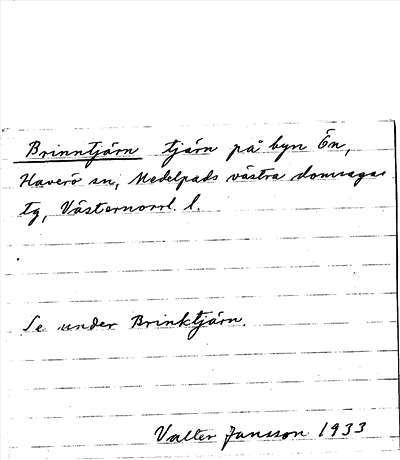 Brinntjärn tjärn på byn Ön,
Haverö sn, Medelpads västra domsagas
tg, Västernorrl. l.
Se under Brinktjärn.
Valter Jansson 1933